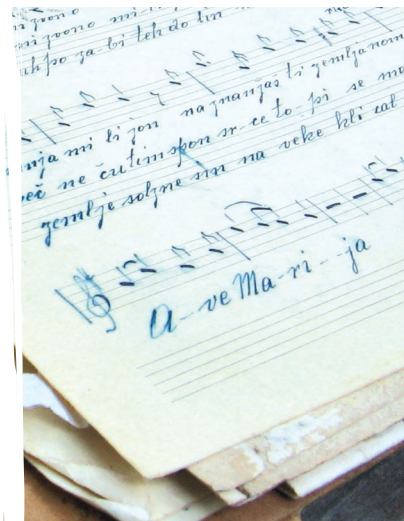 zvono
uhpo za bi teh do lin
nja mi li jon naznanjaš ti zemljanom
več ne čutim spon sr-ce to-pi se
zemlje solzne sin na veke kli cal
A--ve Ma-ri--ja